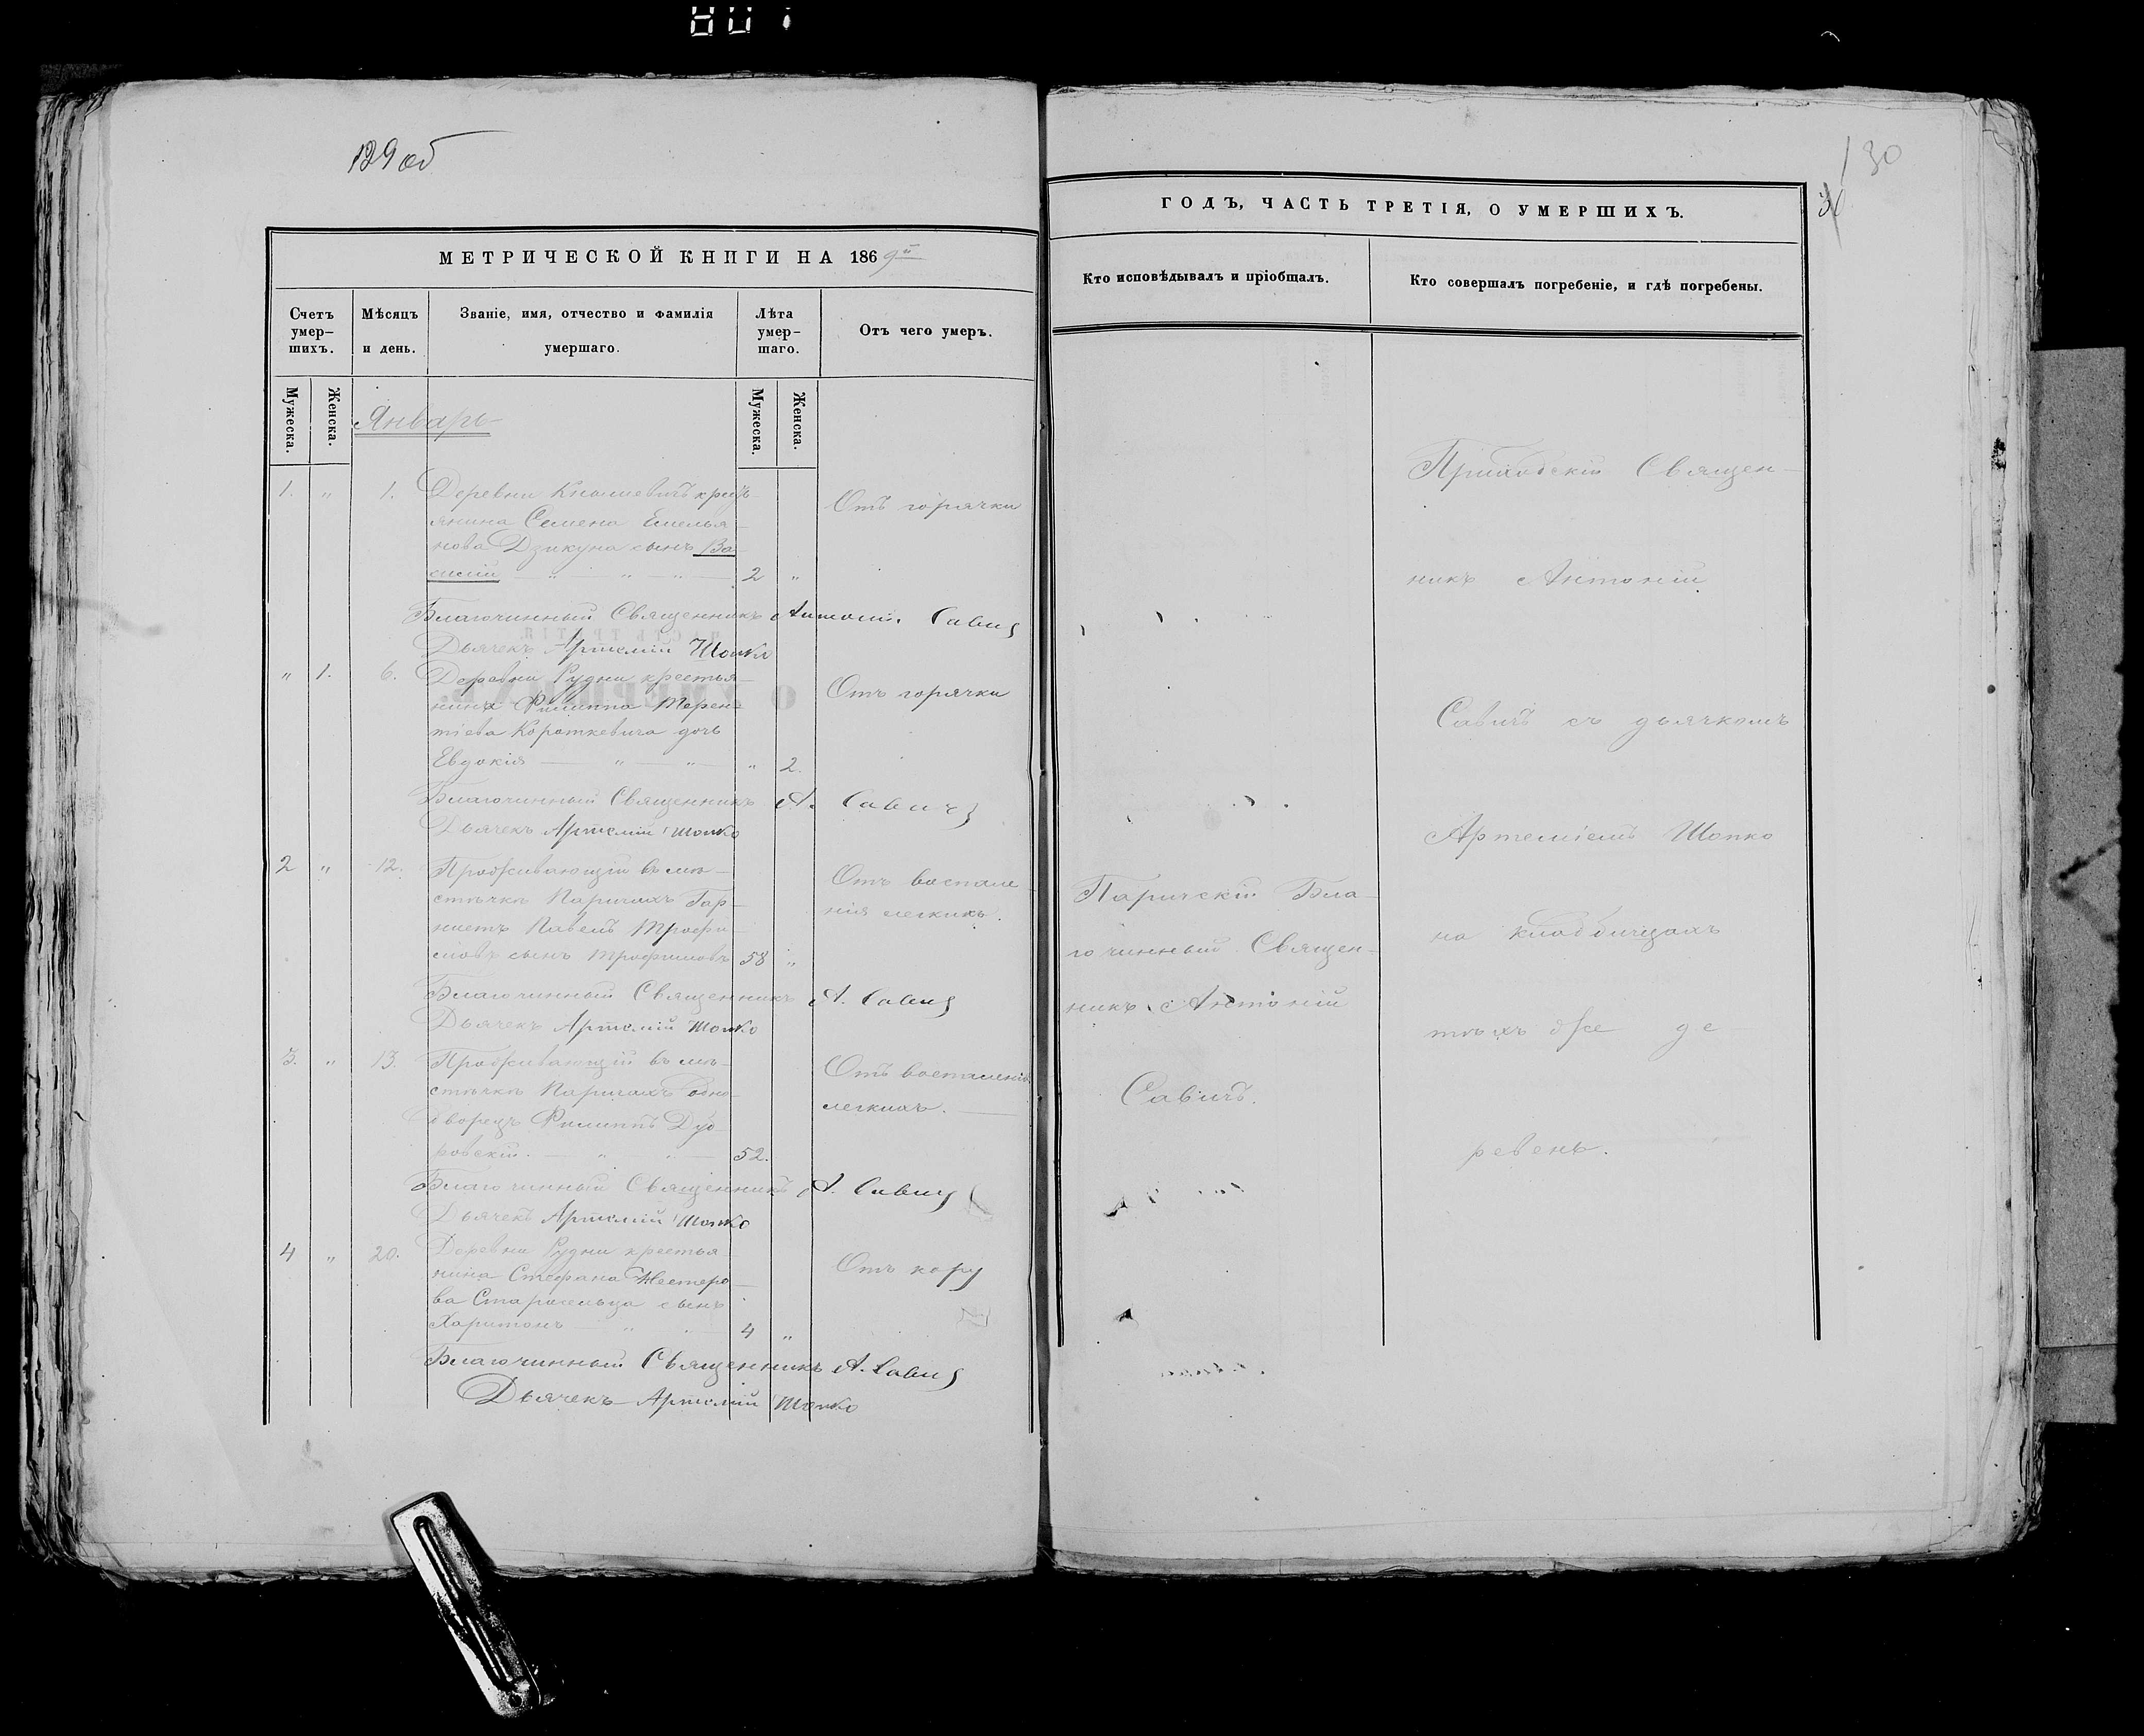 129 об
МЕТРИЧЕСКОЙ КНИГИ НА 1869й
Счетъ умер-шихъ.
Мѣсяцъ и день.
Званіе, имя, отчество и фамилія умершаго.
Лѣта умер-шаго.
Отъ чего умеръ.
Мужеска.
Женска.
Мужеска.
Женска.
Январь
1. " 1. Деревни кресть-
янина Семена Емелья-
нова Дзикуна сынъ Ва-
силій 2 "
Отъ горячки
Благочинный Священникъ Антоній Савичъ
Дьячекъ Артемій Шопко
" 1. 6. Деревни Рудни крестья-
нина Филиппа Терен-
тіева Короткевича дочь
Евдокія " 2.
Отъ горячки
Благочинный Священникъ А. Савичъ
Дьячекъ Артемій Шопко
2 " 12. Проживающій въ мѣ-
стечкѣ Паричахъ
Павелъ Трофи-
мовъ сынъ Трофимовъ 58 "
Отъ воспале-
нія легкихъ.
Благочинный Священникъ А. Савичъ
Дьячекъ Артемій Шопко
3. " 13. Проживающій въ мѣ-
стечкѣ Паричахъ одно-
дворецъ Филиппъ Дуб-
ровскій. 52.
Отъ воспаленія
легкихъ.
Благочинный Священникъ А. Савичъ
Дьячекъ Артемій Шопко
4 " 20. Деревни Рудни крестья-
нина Стефана Нестеро-
ва Старосельца сынъ
Харитонъ 4 "
Отъ кору
Благочинный Священникъ А. Савичъ
Дьячекъ Артемій Шопко
130
ГОДЪ, ЧАСТЬ ТРЕТІЯ, О УМЕРШИХЪ.
Кто исповѣдывалъ и пріобщалъ.
Кто совершалъ погребеніе, и гдѣ погребены.
Паричскій Бла-
гочинный Священ-
никъ Антоній
Савичъ.
Приходскій Священ-
никъ Антоній
Савичъ съ дьячкомъ
Артеміемъ Шопко
на кладбищахъ
тѣхъ же де
ревень.